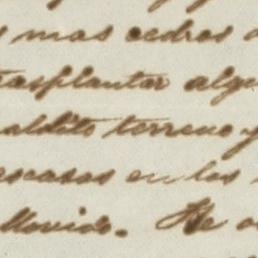 s mas cedros
trasplantar algu
aldito terreno y
escasas en los
llovido. He